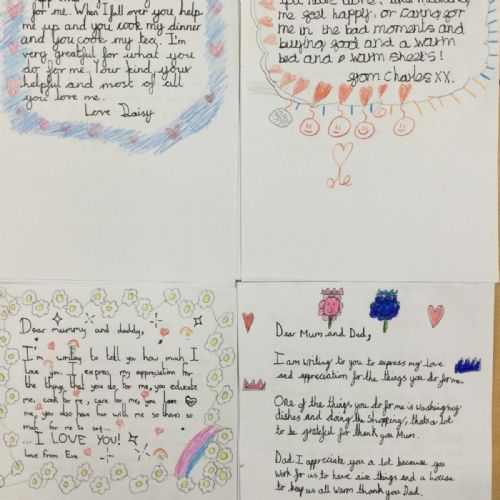 for me. When I fall over you help
me up and you cook my dinner
and you cook my tea. I'm
very greatful for what you
do for me. Your kind, your
helpful and most of all
you love me..
Love Daisy
me feel happy, or caring for
me in the bad moments and
buying food and a warm
bed and warm sheets!
from Charles XX.
Dear mummy and daddy,
I'm writing to tell you how much I
Love you. I express my appreciation for
the things that you do for me, you educate
me, cook for me, care for me, you love
me, you also have fun with me so theirs so
much for me to say...
...I LOVE YOU!
Love from Eva
Dear Mum and Dad,
I am writing to you to express my love
and appreciation for the things you do for me.
One of the things you do for me is washing my
dishes and doing the shopping, thats a lot
to be grateful for thank you Mum.
Dad I appreciate you a lot because you
work for us to have nice things and a house
to keep us all warm thank you Dad.